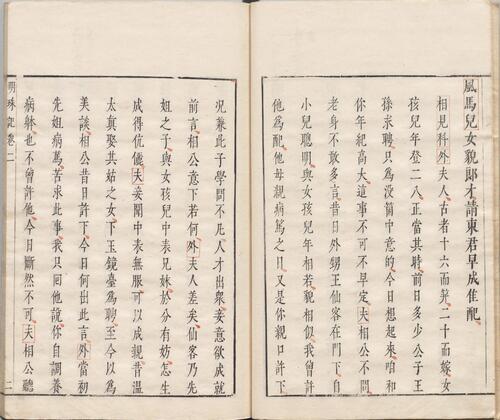 風馬兒女貌郎才請東君早成佳配
相見科外夫人古者十六而笄二十而嫁女
孩兒年登二八正當其時前日多少公子王
孫求聘只為沒箇中意的今日想起來咱和
你年紀高大這事不可不早定夫相公不問
老身不敢多言昔日外甥王仙客在門下自
小兒聰明與女孩兒年相若貌相似我曾許
他為配他母親病篤之日又是你親口許下
況兼此子學問不凡人才出衆妾意欲成就
前言相公意下若何外夫人差矣仙客乃先
姐之子與女孩兒中表兄妹於分有妨怎生
成得伉儷夫妾聞中表無服可以成親昔溫
太真娶其姑之女下玉鏡臺為聘至今以為
美談相公昔日許下今日何出此言外當初
先姐病篤苦求此事我只回他說你自調養
病躰也不曾許他今日斷然不可夫相公聽
明珠記卷二
二